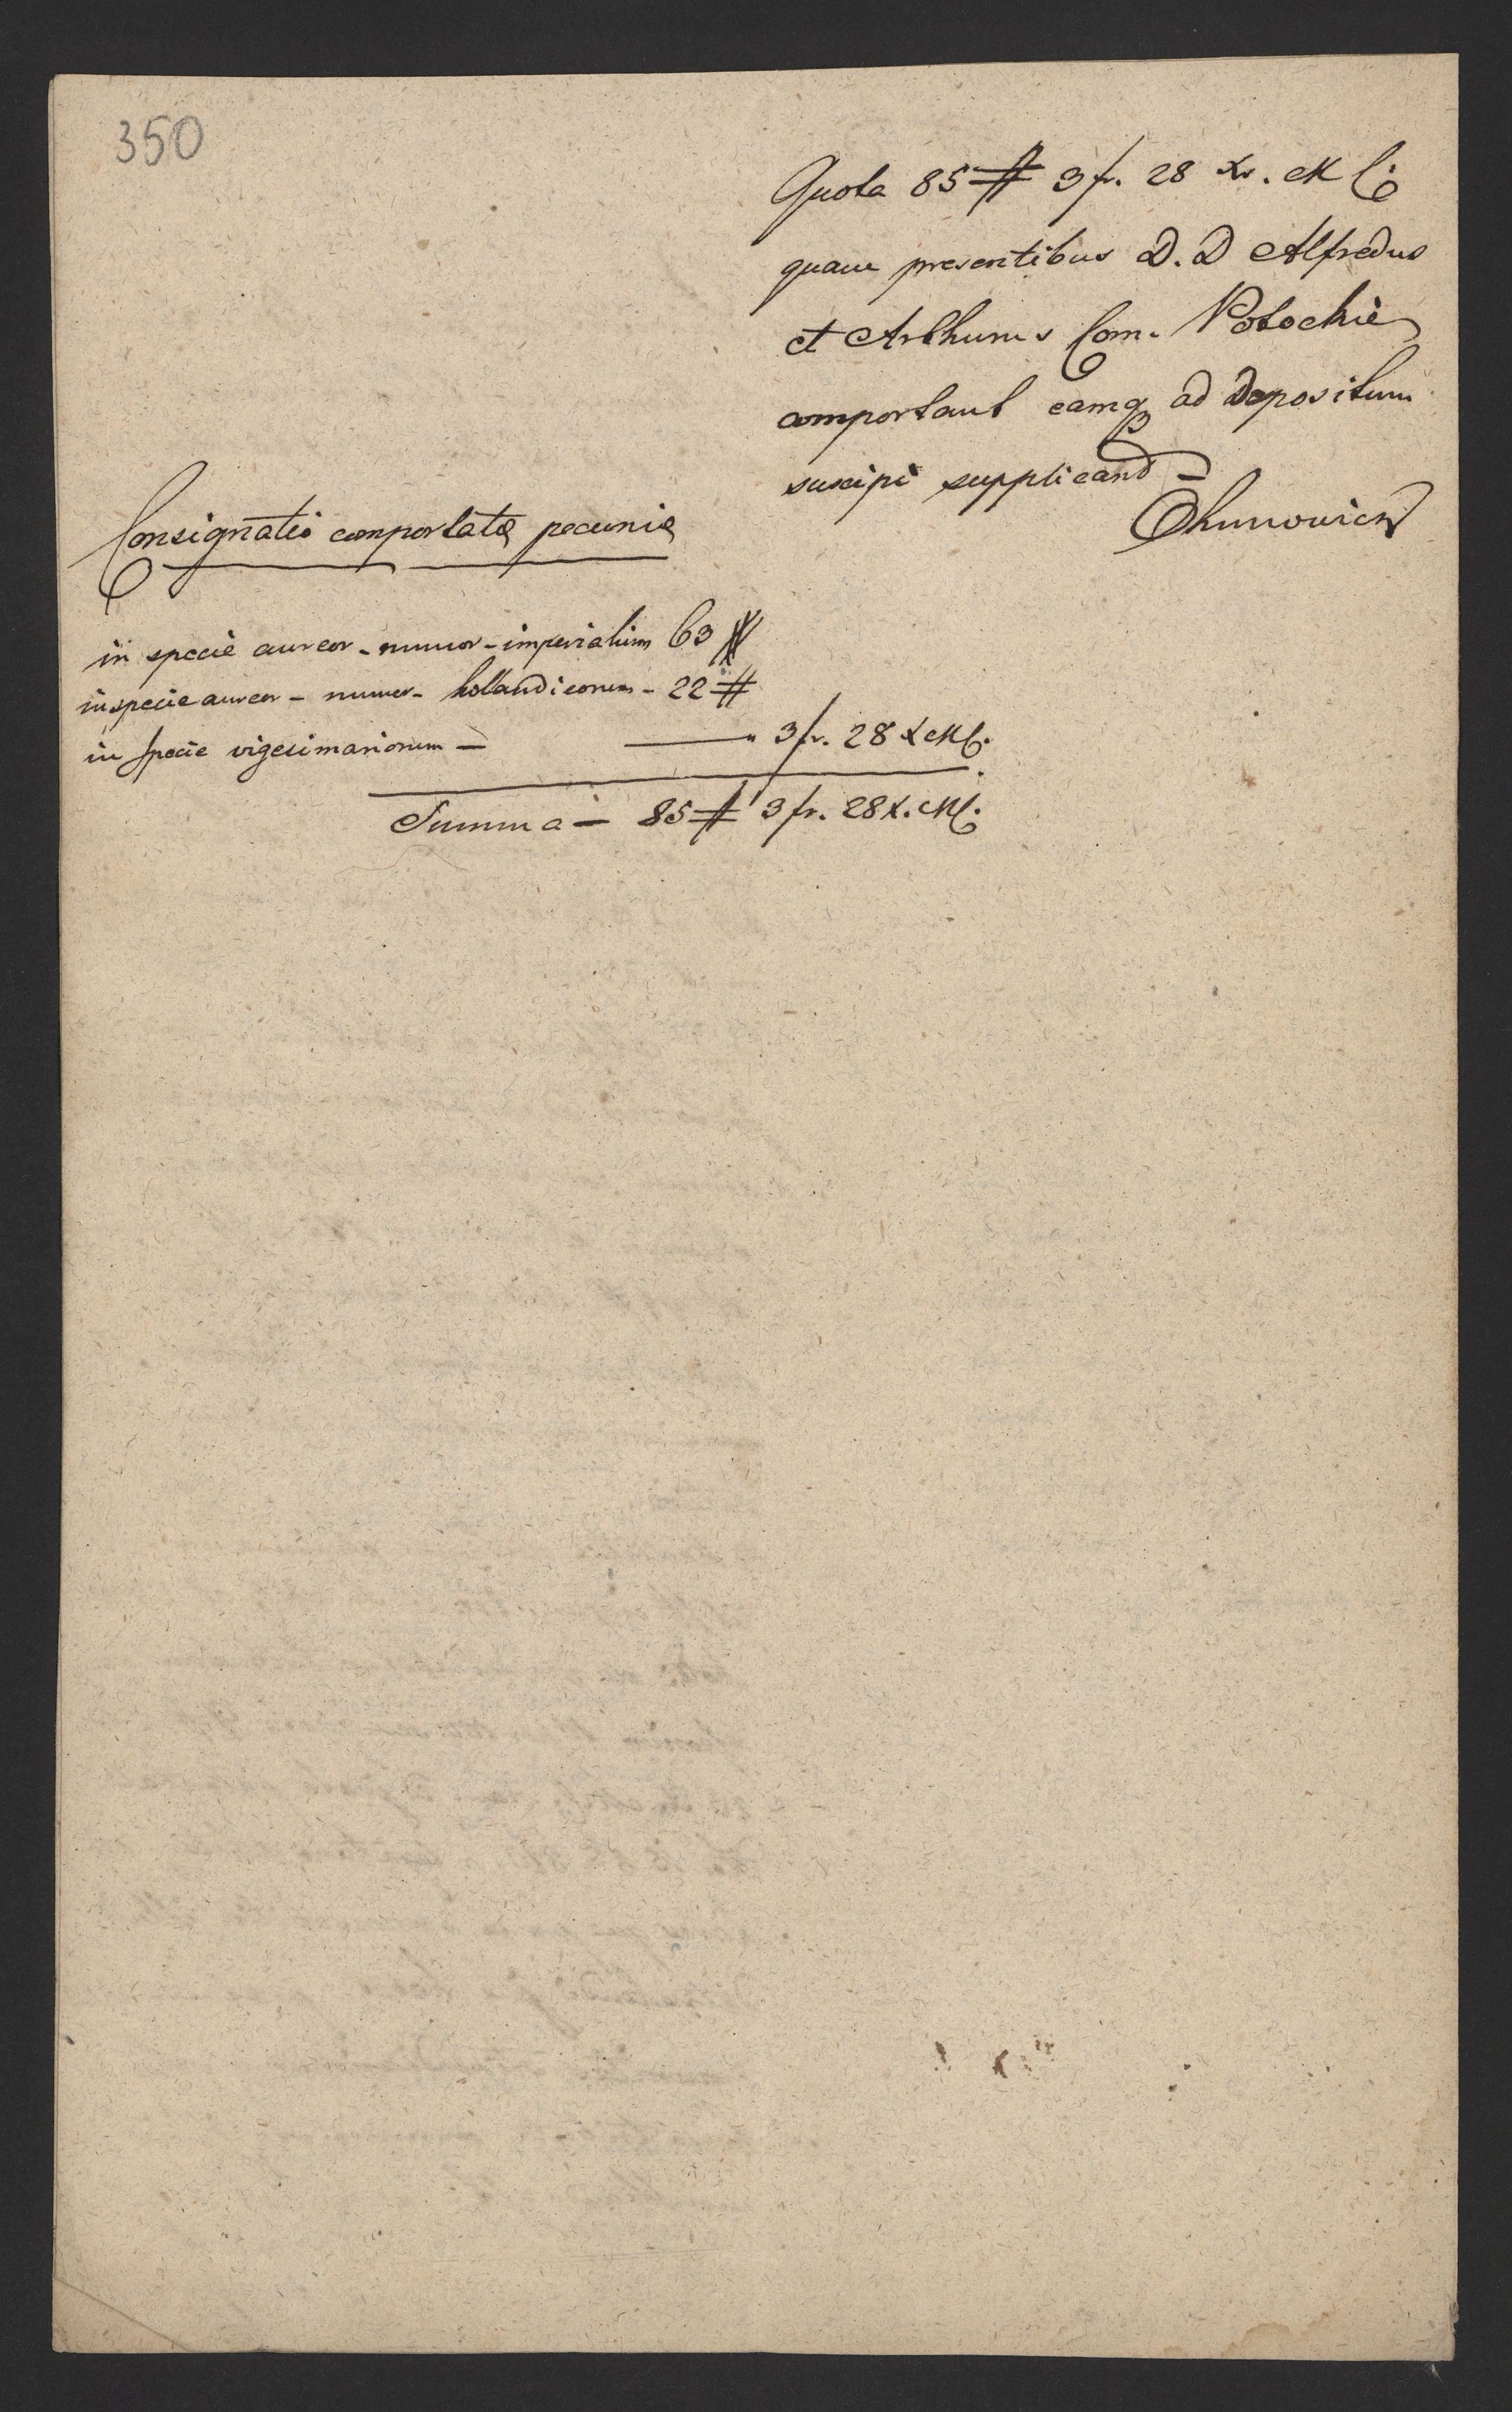 350
Quota 85 # 3 fr. 28 xr. M C
quam presentibus D. D Alfredus
et Arthurus Com. Potockie
comportant eamq ad Depositum
suscipi supplicand
Consignatio comportatæ pecuniæ
in specie aureor - numor - imperialium 63 #
in specie aureor - numor - hollandicorum - 22 #
in specie vigesimariorum — — " 3 fr. 28 x MC.
Summa — 85 # 3 fr. 28 x. MC.